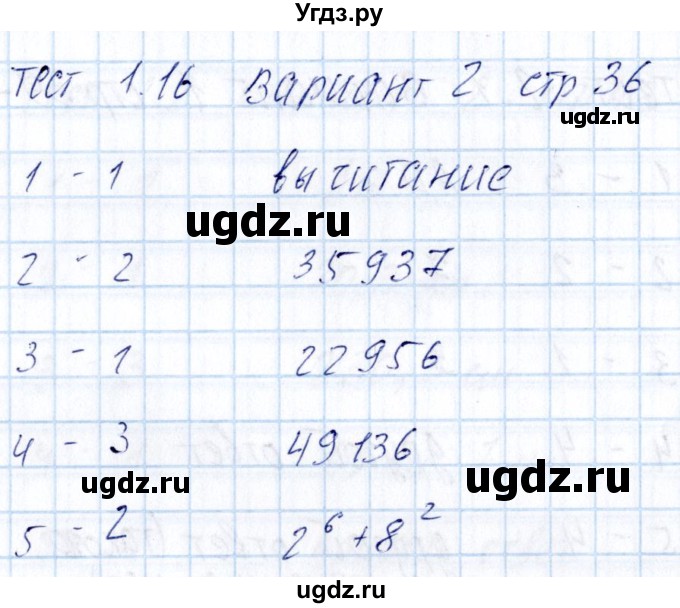 Угдз.ру
Тест 1.16 Вариант 2 стр 36
ugdz.ru
1 - 1 вычитание
ugdz.ru
2 - 2 35937
3 - 1 22956
4 - 3 49136
ugdz.ru
ugdz.ru
5 - 2 2⁶+8²
ugdz.ru